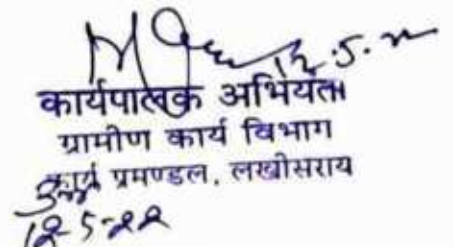 12.5.22
कार्यपालक अभियंता
ग्रामीण कार्य विभाग
कार्य प्रमण्डल, लखीसराय
12-5-22